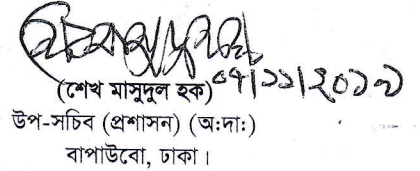 (শেখ মাসুদুল হক) ০৭/১১/২০১৭
উপ-সচিব (প্রশাসন) (অ:দা:)
বাপাউবো, ঢাকা।